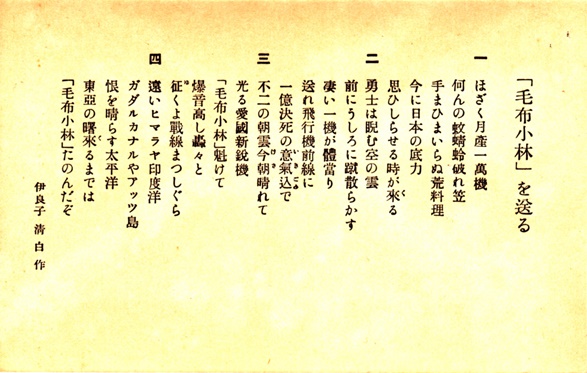 「毛布小林」を送る
一
ほざく月産一萬機
何んの蚊蜻蛉破れ笠
手まひまいらぬ荒料理
今に日本の底力
思ひしらせる時が來る
二
勇士は睨む空の雲
前にうしろに蹴散らかす
凄い一機が體當り
送れ飛行機前線に
一億決死の意氣込で
三
不二の朝雲今朝晴れて
光る愛國新銳機
「毛布小林」魁けて
爆音高し轟々と
征くよ戰線まつしぐら
四
遠いヒマラヤ印度洋
ガダルカナルやアッツ島
恨を晴らす太平洋
東亞の曙來るまでは
「毛布小林」たのんだぞ
伊良子清白作